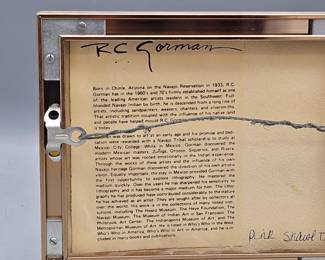 R.C. Gorman
Born in Chinle, Arizona on the Navajo Reservation in 1933, R.C.
Gorman has in the 1960's and 70's firmly established himself as one
of the leading American artists resident in the Southwest. Full
blooded Navajo Indian by birth, he is descended from a long line of
artists, including sandpainters, weavers, chanters, and silversmiths.
That artistic tradition coupled with the influence of his native land
and people have helped mould R.C. Gorman
is today.
Gorman was drawn to art at an early age and his promise and dedi-
cation were rewarded with a Navajo Tribal scholarship to study at
Mexico City College. While in Mexico, Gorman discovered the
modern Mexican masters, Zuñiga, Orozco, Siqueiros, and Rivera,
artists whose art was rooted emotionally in the Indian experience.
Through the works of these artists and the influence of his own
Navajo heritage Gorman discovered the direction of his own artistic
vision. Equally important, the stay in Mexico provided Gorman with
the first opportunity to explore lithography. He mastered the
medium quickly. Over the years he has sharpened his sensitivity to
lithography and it has become a major medium for him. The litho-
graphs he has produced have contributed considerably to the stature
he has achieved as an artist. They are sought after by collectors all
over the world. His work is in the collections of many noted insti-
tutions, including The Heard Museum, The Heye Foundation, The
Navajo Museum, The Museum of Indian Art in San Francisco, The
Philbrook Art Center, The Indianapolis Museum of Art, and The
Metropolitan Museum of Art. He is listed in Who's Who in the West,
Who's Who in America, Who's Who in Art in America, and he is in-
cluded in many books and publications.
Pink Shawl